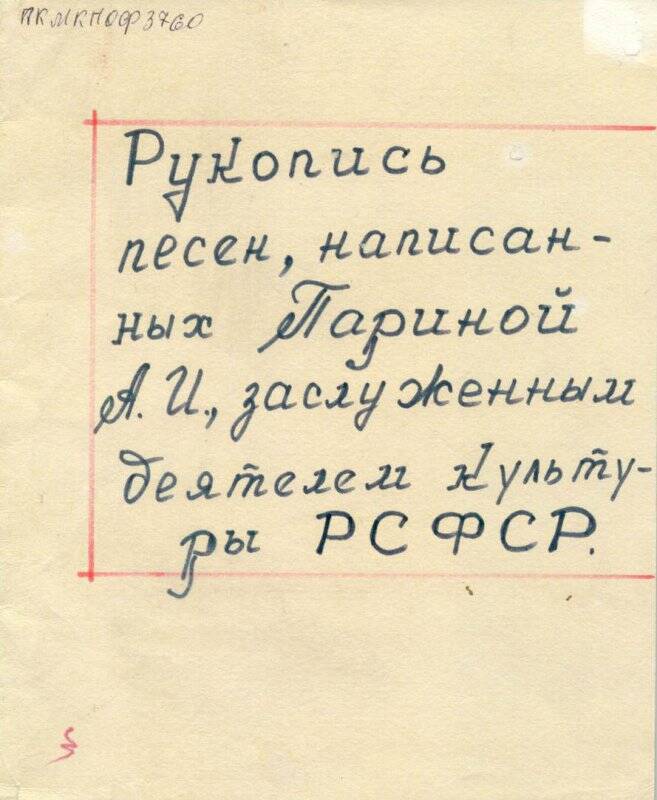 ПКМКНОФ3760
Рукопись
песен, написан-
ных Париной
А.И., заслуженным
деятелем культу-
ры РСФСР.